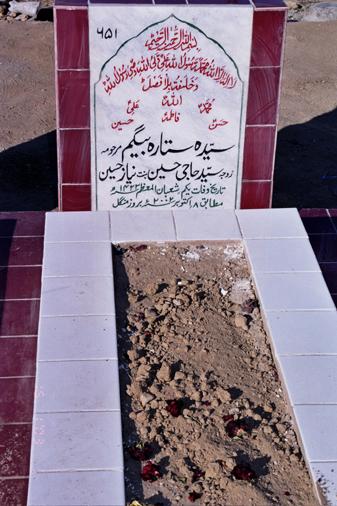 ۶۵۱
بسم اللہ الرحمن الرحیم
لا الہ الا اللہ محمد رسول اللہ علی ولی اللہ وصی رسول اللہ
وخلیفتہ بلا فصل
اللہ
محمدؐ علیؑ
فاطمہؑ
حسنؑ حسینؑ
سیدہ ستارہ بیگم مرحومہ
زوجہ سید حاجی حسین بنت نیاز حسین
تاریخ وفات یکم شعبان المعظم ۱۴۲۳ھ
مطابق ۸ اکتوبر ۲۰۰۲ء بروز منگل